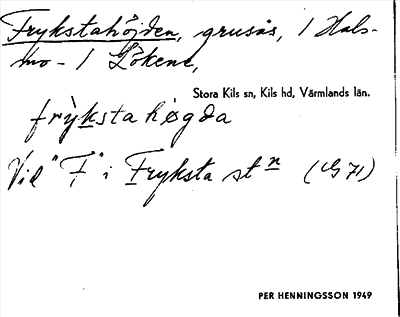 Frykstahöjden, grusås, / Hals-
mo - / Lökene,
Stora Kils sn, Kils hd, Värmlands län.
frỳksta høgda
Vid "F" i Fryksta stn (G 71)
PER HENNINGSSON 1949